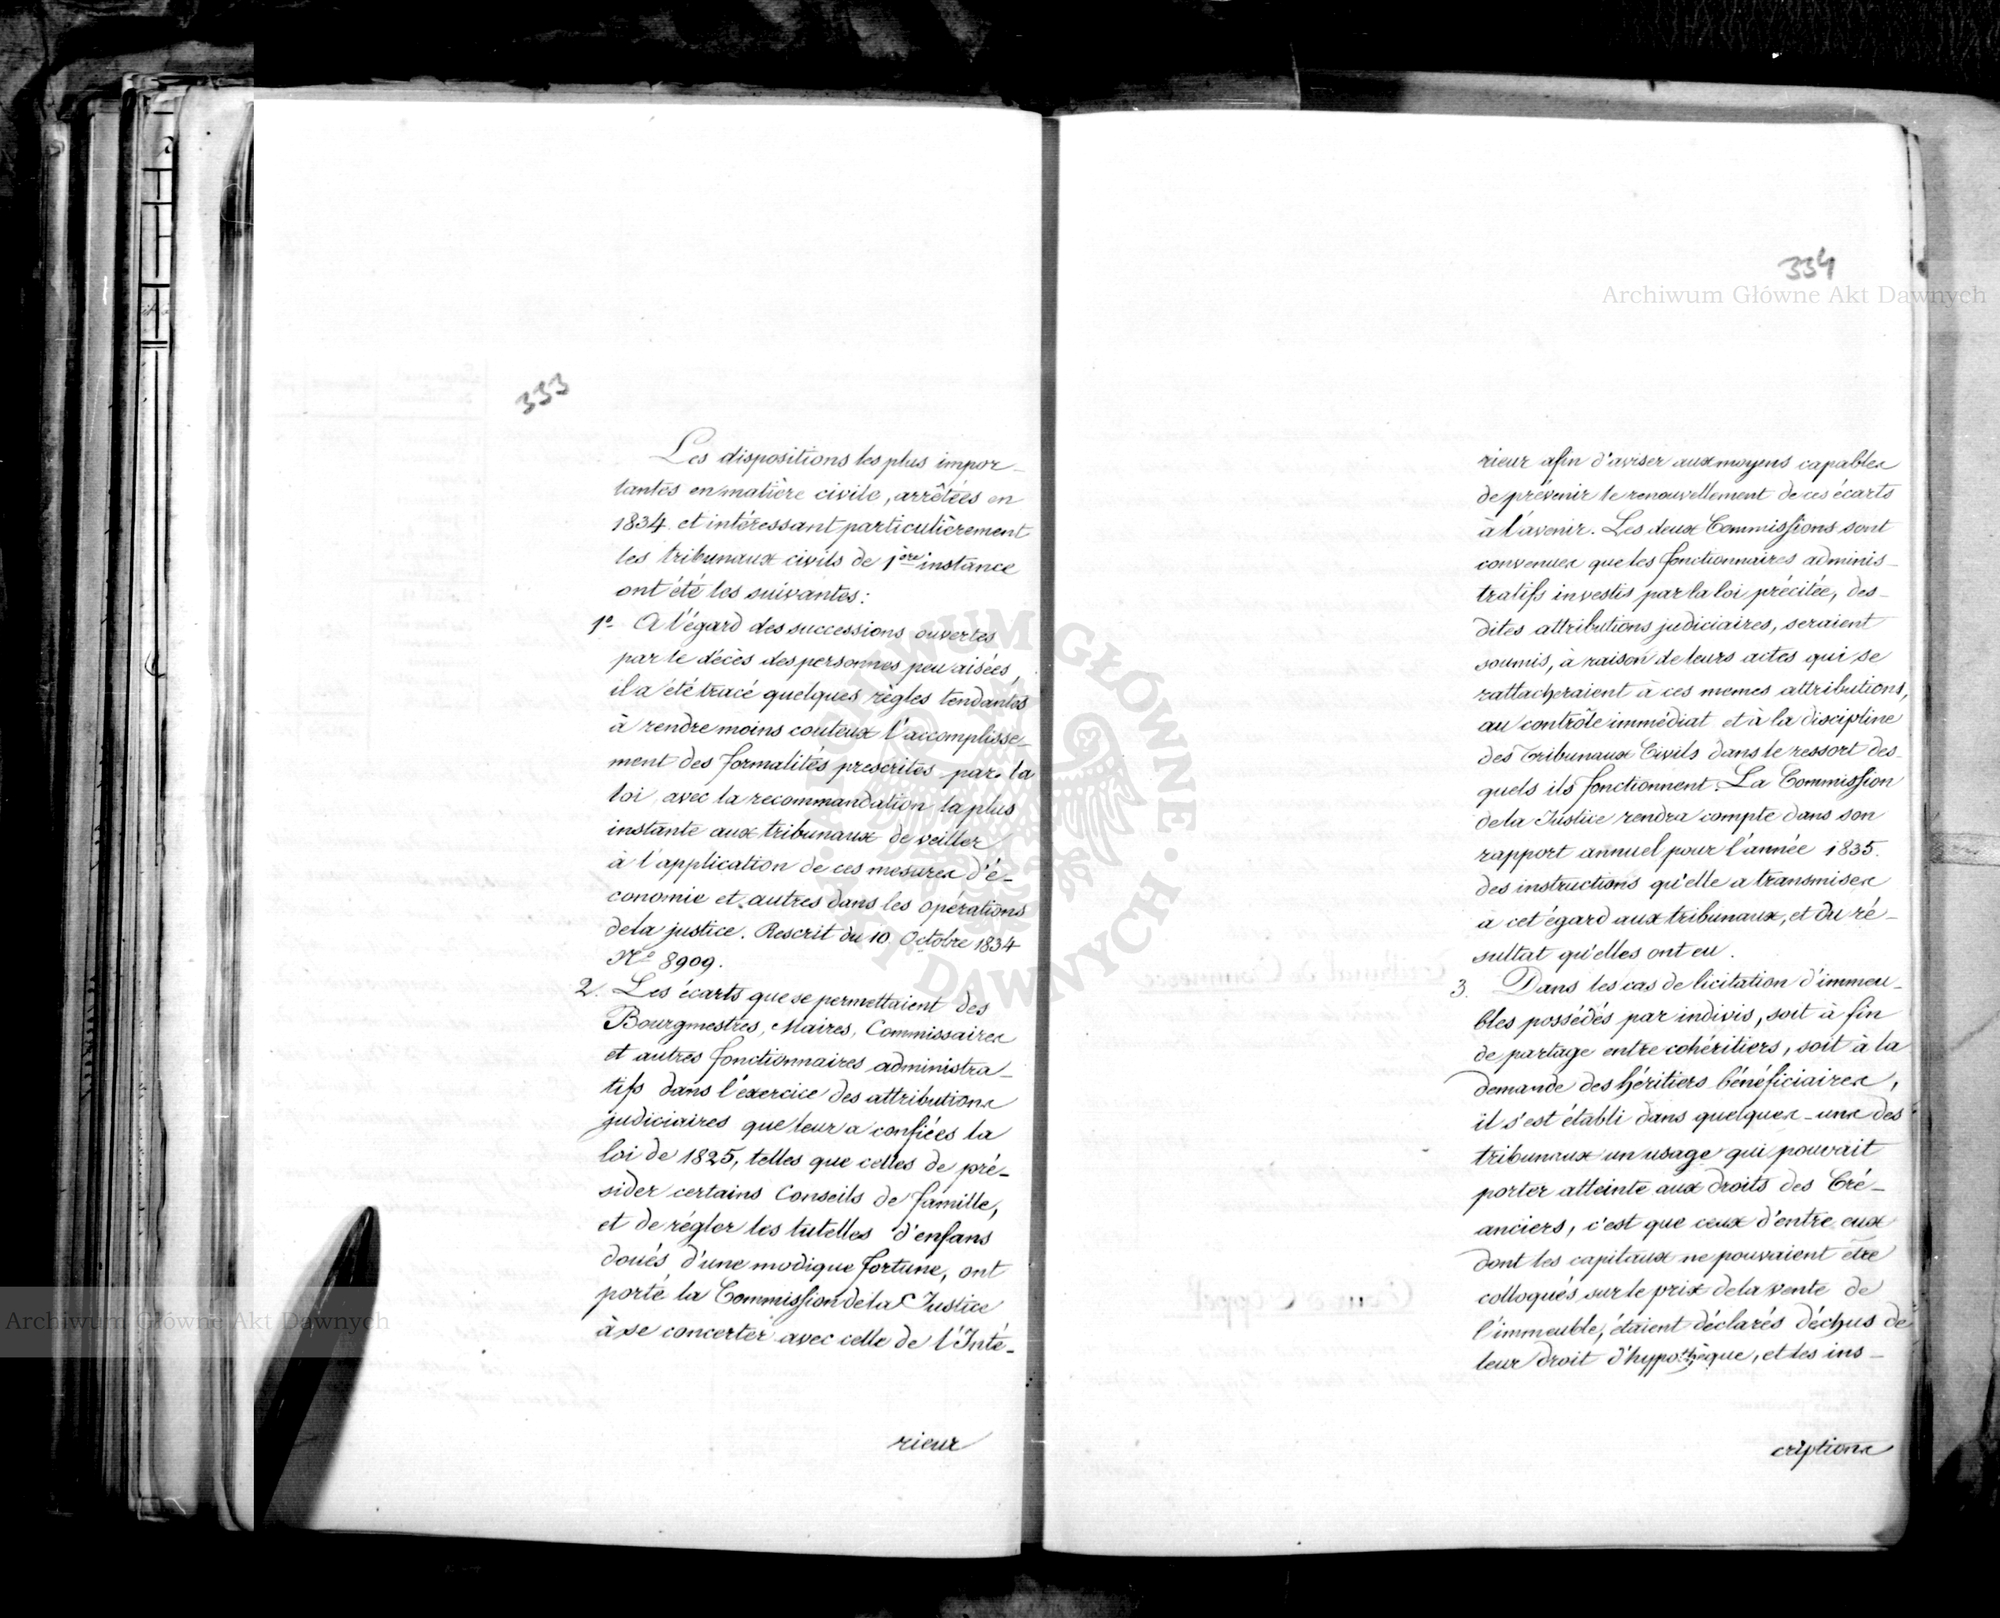 333
Les dispositions les plus impor-
tantes en matière civile, arrêtées en
1834 et intéressant particulièrement
les tribunaux civils de 1ère instance
ont été les suivantes:
1º A l'égard des successions ouvertes
par le décès des personnes peu aisées,
il a été tracé quelques règles tendantes
à rendre moins couteux l'accomplisse-
ment des formalités prescrites par la
loi avec la recommandation la plus
instante aux tribunaux de veiller
à l'application de ces mesures d'é-
conomie et autres dans les opérations
de la justice. Rescrit du 10 Octobre 1834
Nº 8909.
2. Les écarts que se permettaient des
Bourgmestres, Maires, Commissaires
et autres fonctionnaires administra-
tifs dans l'éxercice des attributions
judiciaires que leur a confiées la
loi de 1825, telles que celles de pré-
sider certains Conseils de famille,
et de régler les tutelles d'enfans
doués d'une modique fortune, ont
porté la Commission de la Justice
à se concerter avec celle de l'Inté-
rieur
334
Archiwum Główne Akt Dawnych
rieur afin d'aviser aux moyens capables
de prévenir le renouvellement de ces écarts
à l'avenir. Les deux Commissions sont
convenues que les fonctionnaires adminis-
tratifs investis par la loi précitée, des-
dites attributions judiciaires, seraient
soumis, à raison de leurs actes qui se
rattacheraient à ces memes attributions,
au contrôle immédiat et à la discipline
des Tribunaux Civils dans le ressort des-
quels ils fonctionnent. La Commission
de la Justice rendra compte dans son
rapport annuel pour l'année 1835.
des instructions qu'elle a transmises
à cet égard aux tribunaux, et du ré-
sultat qu'elles ont eu.
3. Dans les cas de licitation d'immeu-
bles possédés par indivis, soit à fin
de partage entre cohéritiers, soit à la
demande des héritiers bénéficiaires,
il s'est établi dans quelques-uns des
tribunaux un usage qui pouvait
porter atteinte aux droits des Cré-
anciers, c'est que ceux d'entre eux
dont les capitaux ne pouvaient être
colloqués sur le prix de la vente de
l'immeuble, étaient déclarés déchus de
leur droit d'hypothèque, et les ins-
criptions
ARCHIWUM GŁÓWNE AKT DAWNYCH
Archiwum Główne Akt Dawnych